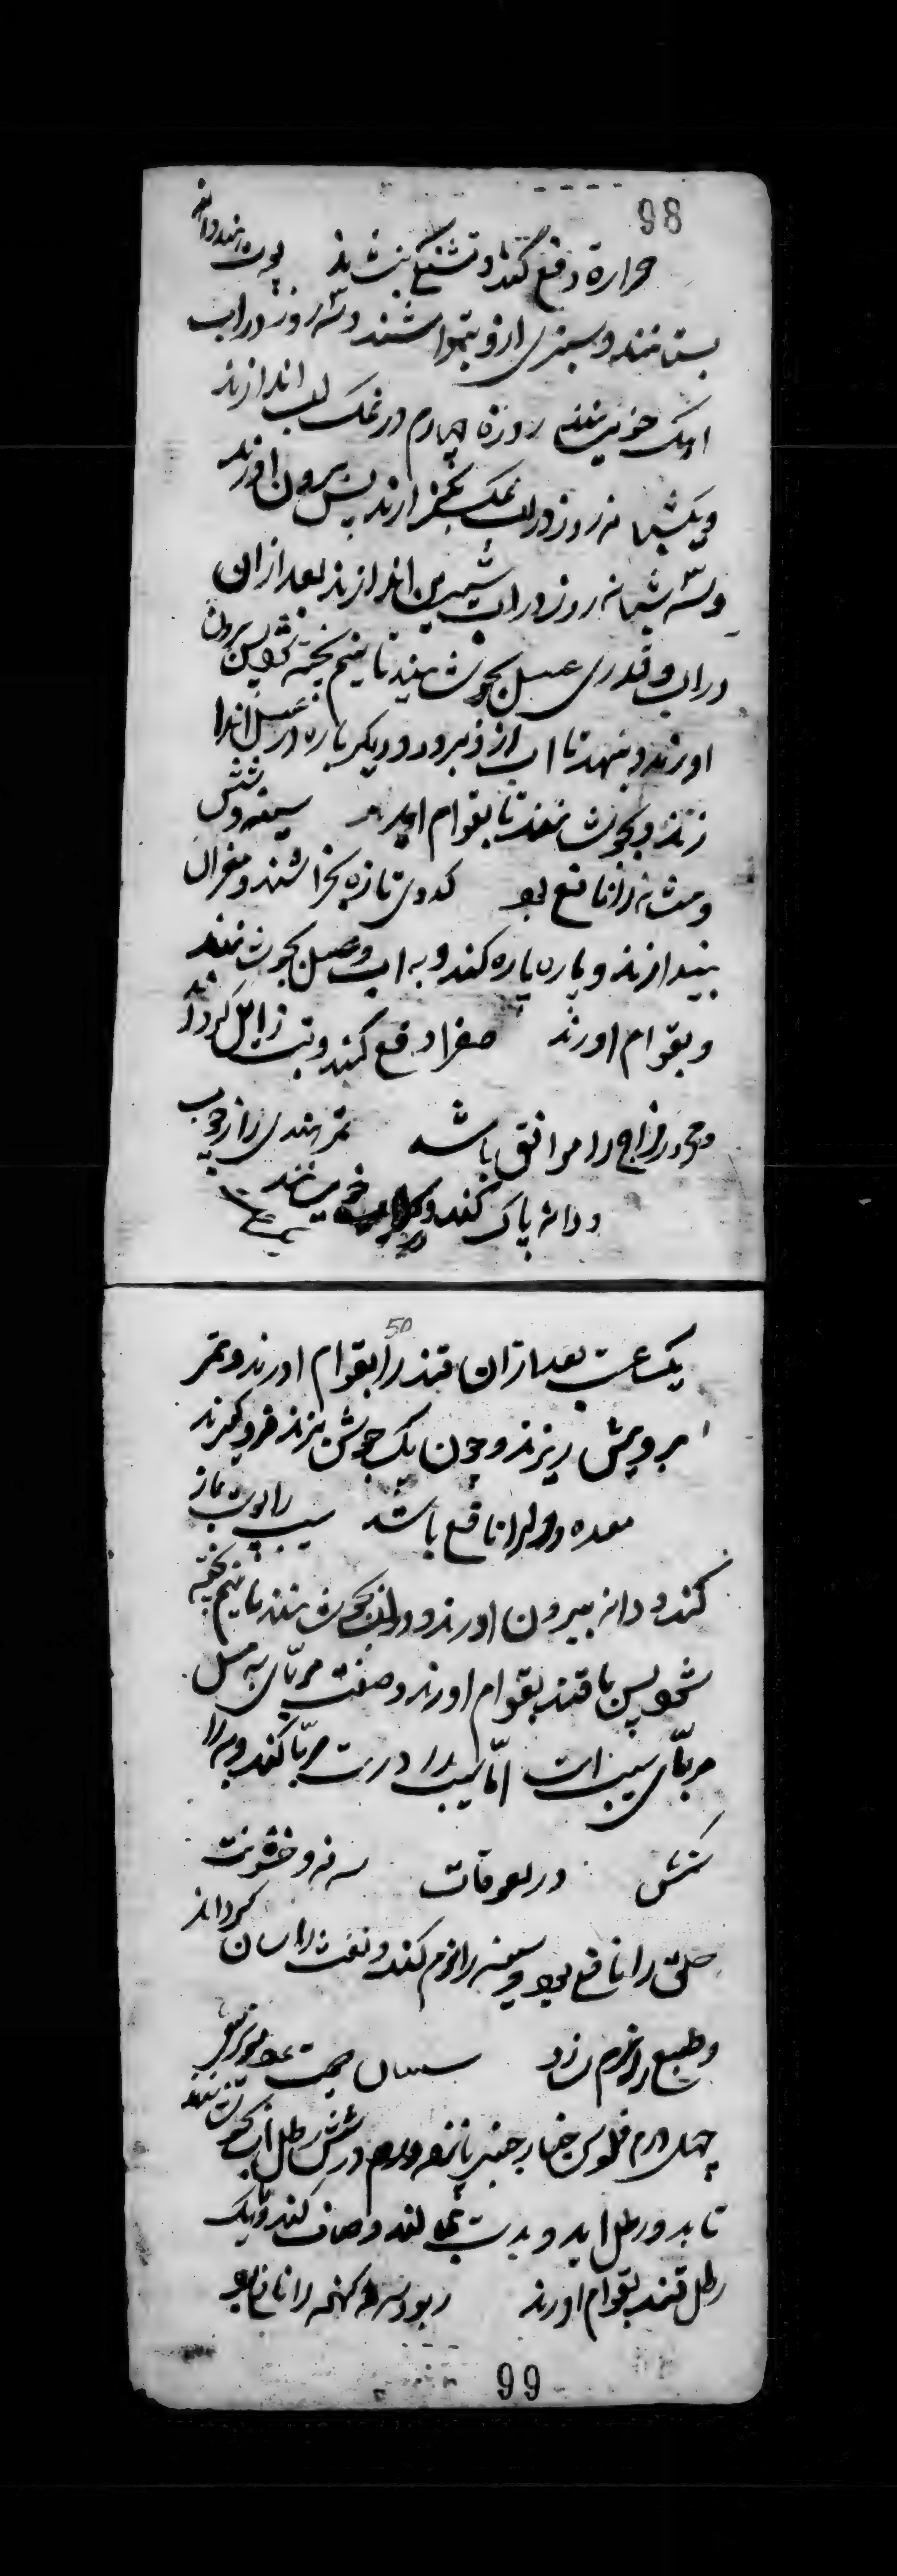 98
حرارة دفع کند و تشنگی بنشاند پوست هندوانه
بستانند و سبزی ازو بتراشند و سه روز در اب
اهک خویسانند روزه چهارم در نمک اب اندازند
و یکشبانه روز در اب نمک بگذارند پس بیرون اورند
و سه شبانه روز در اب شیرین اندازند بعد ازان
در اب و قدری عسل بجوشانند تا نیم پخته شود پس بیرون
اورند و بنهند تا اب ازو برود و دیگر باره در عسل اندا
زند و بجوشانند تا بقوام اید سینه و شش
و مثانه را نافع بود کدوی تازه بخراشند و مغز ان
بیندازند و پاره پاره کنند و به اب و عسل بجوشانند
و بقوام اورند صفرا دفع کند و تب زایل گرداند
و محرور مزاج را موافق باشد تمر هندی را از چوب
و دانه پاک کنند و خویسانند
50
یکساعت بعد ازان قند را بقوام اورند و تمر
برویش ریزند و چون یک جوش بزند فرو گیرند
معده و را نافع باشد سیب را پوست باز
کنند و دانه بیرون اورند و در اب بجوشانند تا نیم پخته
شود پس با قند بقوام اورند و صفت مربای به مثل
مربای سیب است اما سیب را درست مربا کنند و به را
در لعوقات سرفه و خشونت
حلق را نافع بود و سینه را نرم کند و نفث را اسان گرداند
و طبع را نرم سازد سپستان صد عدد مویز منقی
چهل درم فلوس خیار چنبر پانزده درم در شش رطل اب بجوشانند
تا بدو رطل اید و بدست بمالند و صاف کنند و با یک
رطل قند بقوام اورند ربو و سرفه کهنه را نافع بود
99